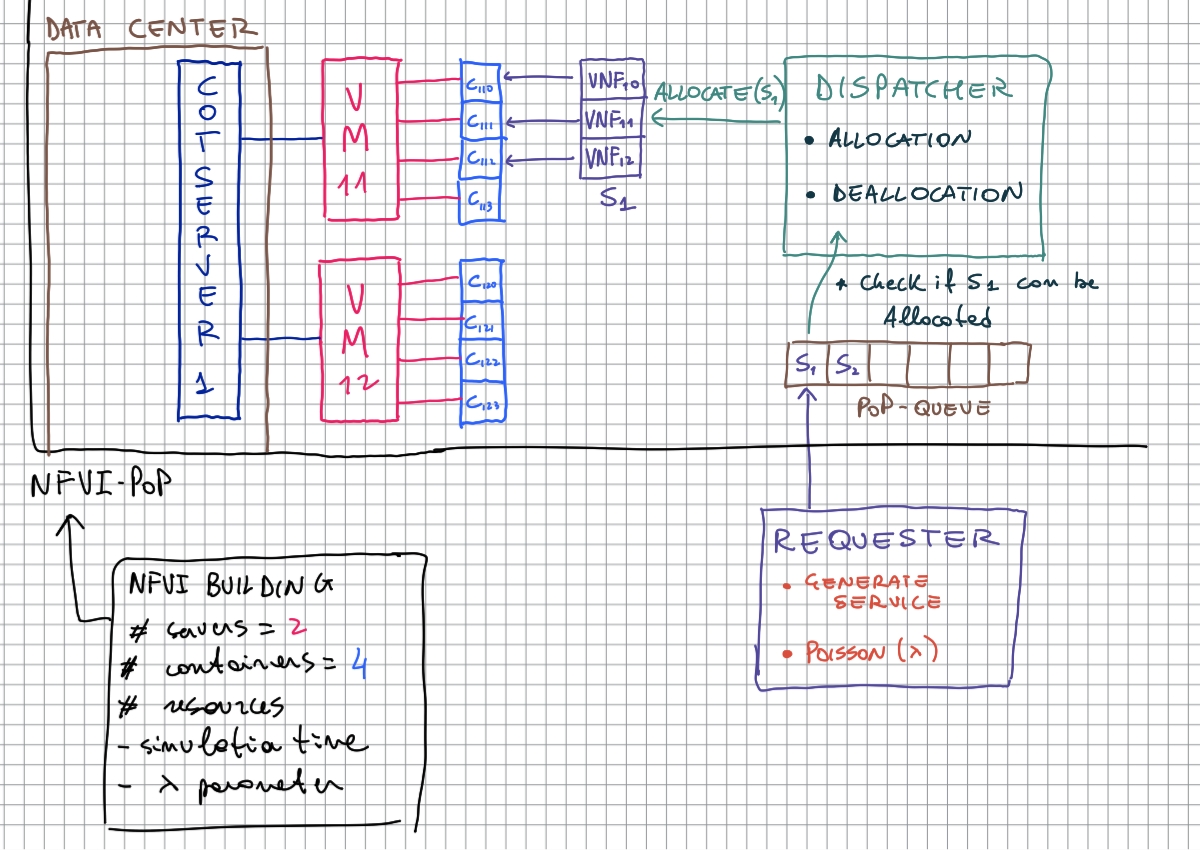 DATA CENTER
COTSERVER 1
VM11
C110
C111
C112
C113
VNF10
VNF11
VNF12
S1
ALLOCATE(S1)
DISPATCHER
• ALLOCATION
• DEALLOCATION
* Check if S1 can be
Allocated
VM12
C120
C121
C122
C123
S1 S2
POP-QUEUE
NFVI-POP
NFVI BUILDING
# servers = 2
# containers = 4
# resources
- simulatio time
- λ parameter
REQUESTER
• GENERATE
SERVICE
• POISSON (λ)